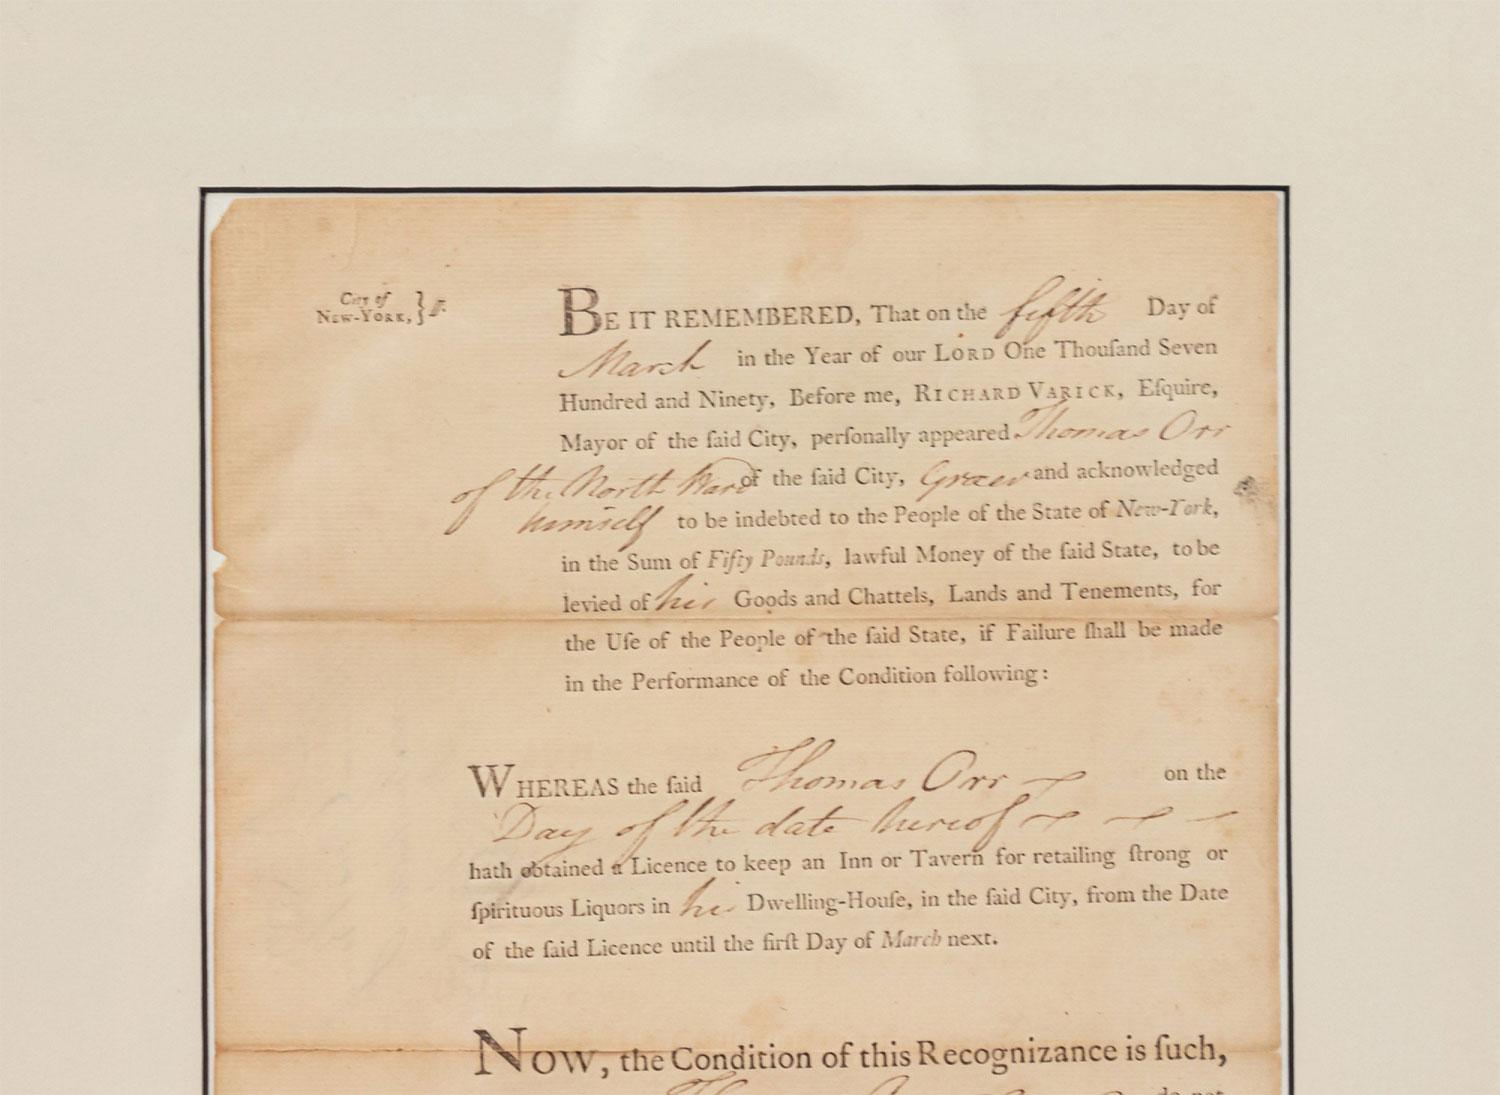 City of
NEW-YORK, } ſſ.
BE IT REMEMBERED, That on the fifth Day of
March in the Year of our LORD One Thouſand Seven
Hundred and Ninety, Before me, RICHARD VARICK, Eſquire,
Mayor of the ſaid City, perſonally appeared Thomas Orr
of the North Ward of the ſaid City, Grocer and acknowledged
himself to be indebted to the People of the State of New-York,
in the Sum of Fifty Pounds, lawful Money of the ſaid State, to be
levied of his Goods and Chattels, Lands and Tenements, for
the Uſe of the People of the ſaid State, if Failure ſhall be made
in the Performance of the Condition following:
WHEREAS the ſaid Thomas Orr on the
Day of the date hereof
hath obtained a Licence to keep an Inn or Tavern for retailing ſtrong or
ſpirituous Liquors in his Dwelling-Houſe, in the ſaid City, from the Date
of the ſaid Licence until the firſt Day of March next.
NOW, the Condition of this Recognizance is ſuch,
do not